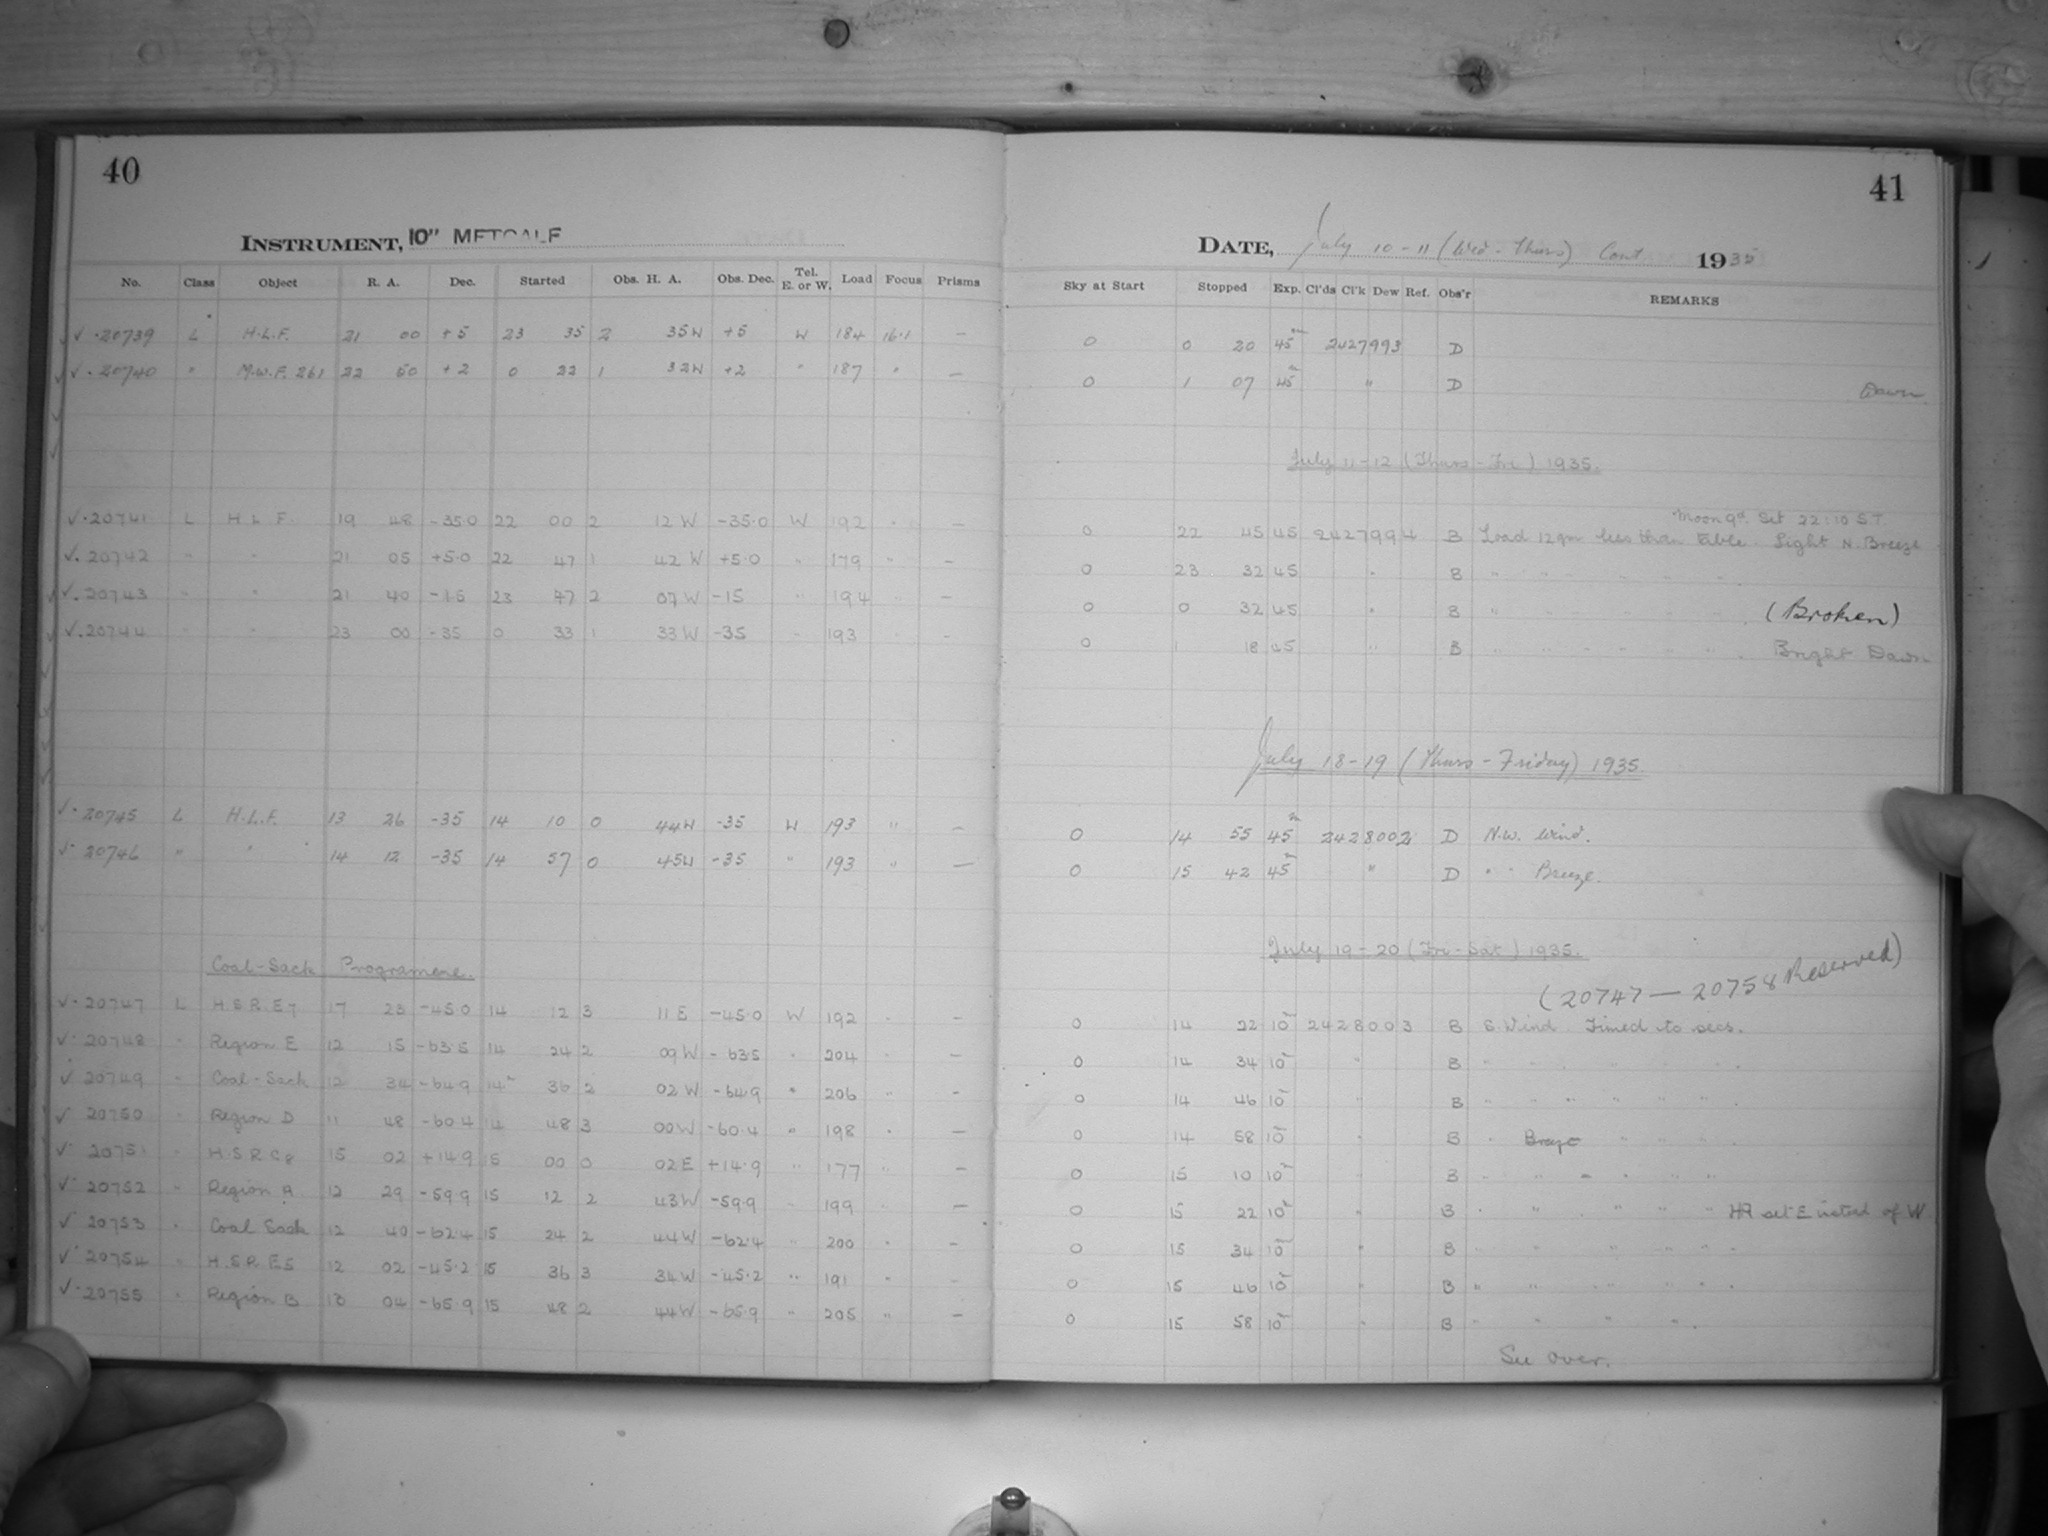 40
INSTRUMENT, 10" METCALF
No. Class Object R. A. Dec. Started Obs. H. A. Obs. Dec. Tel. E. or W. Load Focus Prisms
✓ · 20739 L H.L.F. 21 00 +5 23 35 2 35W +5 W 184 16.1 —
✓ · 20740 " M.W.F. 261 22 50 +2 0 22 1 32W +2 " 187 " —
✓ · 20741 L H L F. 19 48 -35.0 22 00 2 12 W -35.0 W 192 " —
✓ · 20742 " " 21 05 +5.0 22 47 1 42 W +5.0 " 179 " —
✓ · 20743 " " 21 40 -15 23 47 2 07 W -15 " 194 " —
✓ · 20744 " " 23 00 -35 0 33 1 33 W -35 " 193 " —
✓ · 20745 L H.L.F. 13 26 -35 14 10 0 44W -35 W 193 " —
✓ · 20746 " " 14 12 -35 14 57 0 45W -35 " 193 " —
Coal-Sack Programene.
✓ · 20747 L H.S.R. E7 17 23 -45.0 14 12 3 11 E -45.0 W 192 " —
✓ · 20748 " Region E 12 15 -63.5 14 24 2 09 W -63.5 " 204 " —
✓ · 20749 " Coal-Sack 12 34 -64.9 14 36 2 02 W -64.9 " 206 " —
✓ 20750 " Region D 11 48 -60.4 14 48 3 00 W -60.4 " 198 " —
✓ · 20751 " H.S.R C8 15 02 +14.9 15 00 0 02 E +14.9 " 177 " —
✓ · 20752 " Region A 12 29 -59.9 15 12 2 43 W -59.9 " 199 " —
✓ · 20753 " Coal Sack 12 40 -62.4 15 24 2 44 W -62.4 " 200 " —
✓ · 20754 " H.S.R. E5 12 02 -45.2 15 36 3 34 W -45.2 " 191 " —
✓ · 20755 " Region B 13 04 -65.9 15 48 2 44 W -65.9 " 205 " —
41
DATE, July 10-11 (Wed-Thurs) Cont 1935
Sky at Start Stopped Exp. Cl'ds Cl'k Dew Ref. Obs'r REMARKS
0 0 20 45m 2427993 D
0 1 07 45m " D Dawn.
July 11-12 (Thurs-Fri) 1935.
Moon 9d. Set 22:10 S.T.
0 22 45 45 2427994 B Load 12gm less than table. Light N. Breeze
0 23 32 45 " B " " " " " "
0 0 32 45 " B " " " " " " (Broken)
0 1 18 45 " B " " " " " " Bright Dawn
July 18-19 (Thurs-Friday) 1935.
0 14 55 45m 2428002 D N.W. Wind.
0 15 42 45m " D " " Breeze.
July 19-20 (Fri-Sat) 1935.
(20747 — 20758 Reserved)
0 14 22 10m 2428003 B S. Wind Timed to secs.
0 14 34 10m " B " " " " "
0 14 46 10m " B " " " " "
0 14 58 10m " B " Breeze " " "
0 15 10 10m " B " " " " "
0 15 22 10m " B " " " " " HA set E insted of W
0 15 34 10m " B " " " " "
0 15 46 10m " B " " " " "
0 15 58 10m " B " " " "
See over.